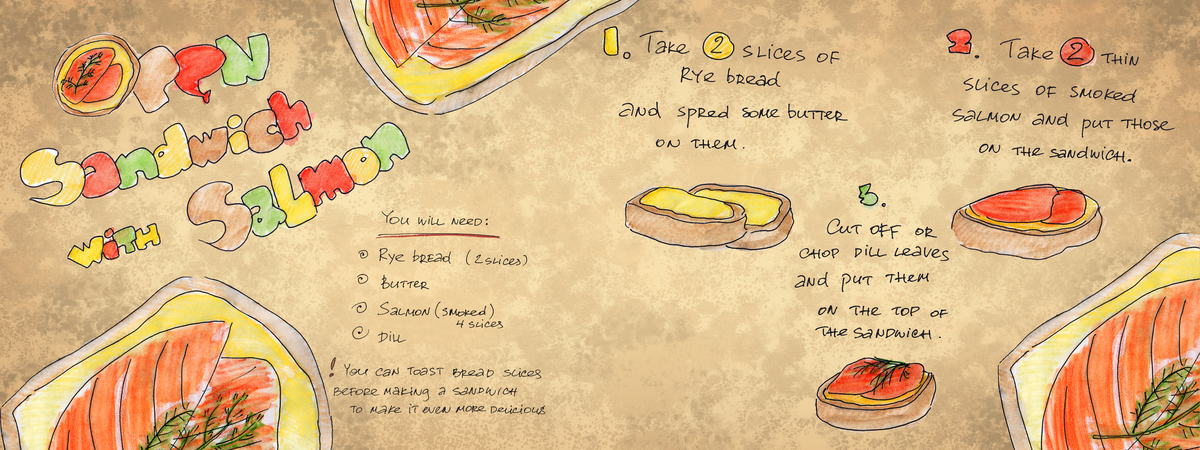 OPEN
Sandwich
with Salmon
You will need:
Rye bread (2 slices)
Butter
Salmon (smoked)
4 slices
Dill
! You can toast bread slices
before making a sandwich
to make it even more delicious
1. Take 2 slices of
Rye bread
and spred some butter
on them.
2. Take 2 thin
slices of smoked
salmon and put those
on the sandwich.
3.
Cut off or
chop dill leaves
and put them
on the top of
the sandwich.